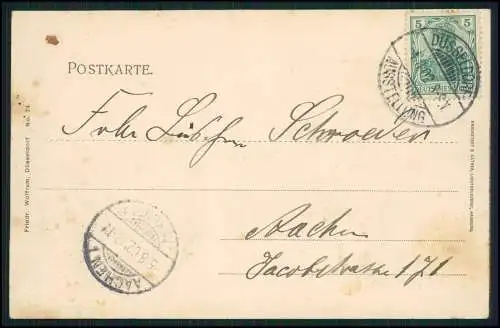 5
DÜSSELDORF
AUSSTELLUNG
POSTKARTE.
Frln Lisschen Schroeder
Aachen
Jacobstrasse 171
AACHEN 1
Friedr. Wolfrum, Düsseldorf No. 24